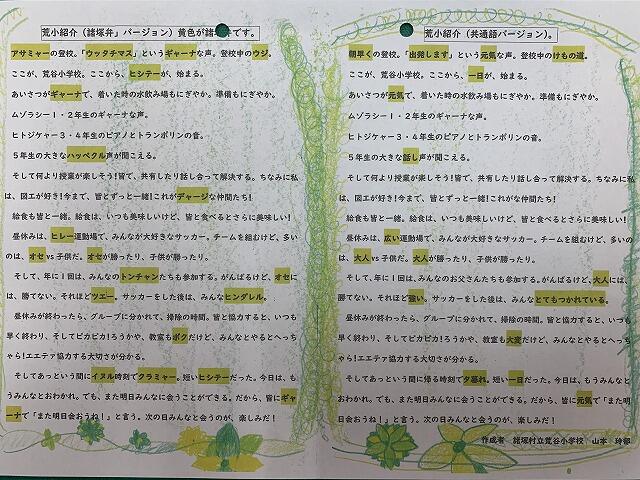 荒小紹介（諸塚弁」バージョン）黄色が諸塚弁です。
アサミャーの登校。「ウッタチマス」というギャーナな声。登校中のウジ。
ここが、荒谷小学校。ここから、ヒシテーが、始まる。
あいさつがギャーナで、着いた時の水飲み場もにぎやか。準備もにぎやか。
ムゾラシー１・２年生のギャーナな声。
ヒトジケャー３・４年生のピアノとトランポリンの音。
５年生の大きなハッペクル声が聞こえる。
そして何より授業が楽しそう！皆で、共有したり話し合って解決する。ちなみに私
は、図工が好き！今まで、皆とずっと一緒！これがデャージな仲間たち！
給食も皆と一緒。給食は、いつも美味しいけど、皆と食べるとさらに美味しい！
昼休みは、ヒレー運動場で、みんなが大好きなサッカー。チームを組むけど、多い
のは、オセ vs 子供だ。オセが勝ったり、子供が勝ったり。
そして、年に１回は、みんなのトンチャンたちも参加する。がんばるけど、オセに
は、勝てない。それほどツエー。サッカーをした後は、みんなヒンダレル。
昼休みが終わったら、グループに分かれて、掃除の時間。皆と協力すると、いつも
早く終わり、そしてピカピカ！ろうかや、教室もボクだけど、みんなとやるとへっち
ゃら！エエテャ協力する大切さが分かる。
そしてあっという間にイヌル時刻でクラミャー。短いヒシテーだった。今日は、も
うみんなとおわかれ。でも、また明日みんなに会うことができる。だから、皆にギャ
ーナで「また明日会おうね！」と言う。次の日みんなと会うのが、楽しみだ！
荒小紹介（共通語バージョン）。
朝早くの登校。「出発します」という元気な声。登校中のけもの道。
ここが、荒谷小学校。ここから、一日が、始まる。
あいさつが元気で、着いた時の水飲み場もにぎやか。準備もにぎやか。
ムゾラシー１・２年生のギャーナな声。
ヒトジケャー３・４年生のピアノとトランポリンの音。
５年生の大きな話し声が聞こえる。
そして何より授業が楽しそう！皆で、共有したり話し合って解決する。ちなみに私
は、図工が好き！今まで、皆とずっと一緒！これがな仲間たち！
給食も皆と一緒。給食は、いつも美味しいけど、皆と食べるとさらに美味しい！
昼休みは、広い運動場で、みんなが大好きなサッカー。チームを組むけど、多いの
は、大人 vs 子供だ。大人が勝ったり、子供が勝ったり。
そして、年に１回は、みんなのお父さんたちも参加する。がんばるけど、大人には、
勝てない。それほど強い。サッカーをした後は、みんなとてもつかれている。
昼休みが終わったら、グループに分かれて、掃除の時間。皆と協力すると、いつも
早く終わり、そしてピカピカ！ろうかや、教室も大変だけど、みんなとやるとへっち
ゃら！エエテャ協力する大切さが分かる。
そしてあっという間に帰る時刻で夕暮れ。短い一日だった。今日は、もうみんなと
おわかれ。でも、また明日みんなに会うことができる。だから、皆に元気で「また明
日会おうね！」と言う。次の日みんなと会うのが、楽しみだ！
作成者　諸塚村立荒谷小学校　山本